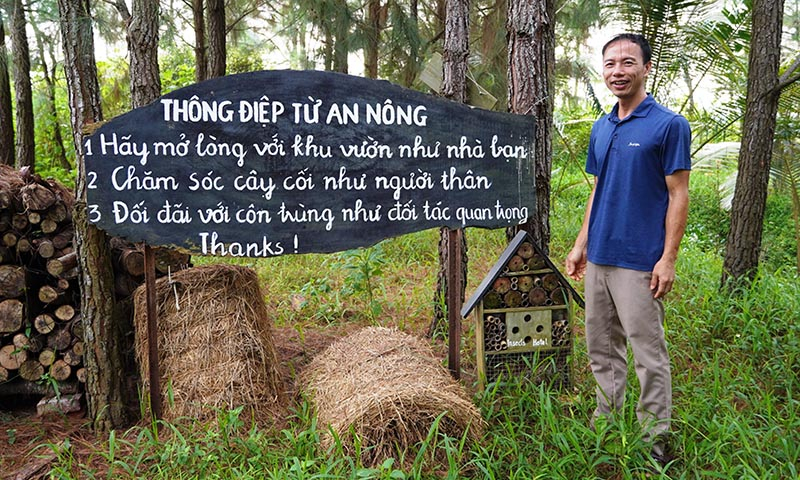 THÔNG ĐIỆP TỪ AN NÔNG
1 Hãy mở lòng với khu vườn như nhà bạn
2 Chăm sóc cây cối như người thân
3 Đối đãi với côn trùng như đối tác quan trọng
Thanks !
Insects Hotel